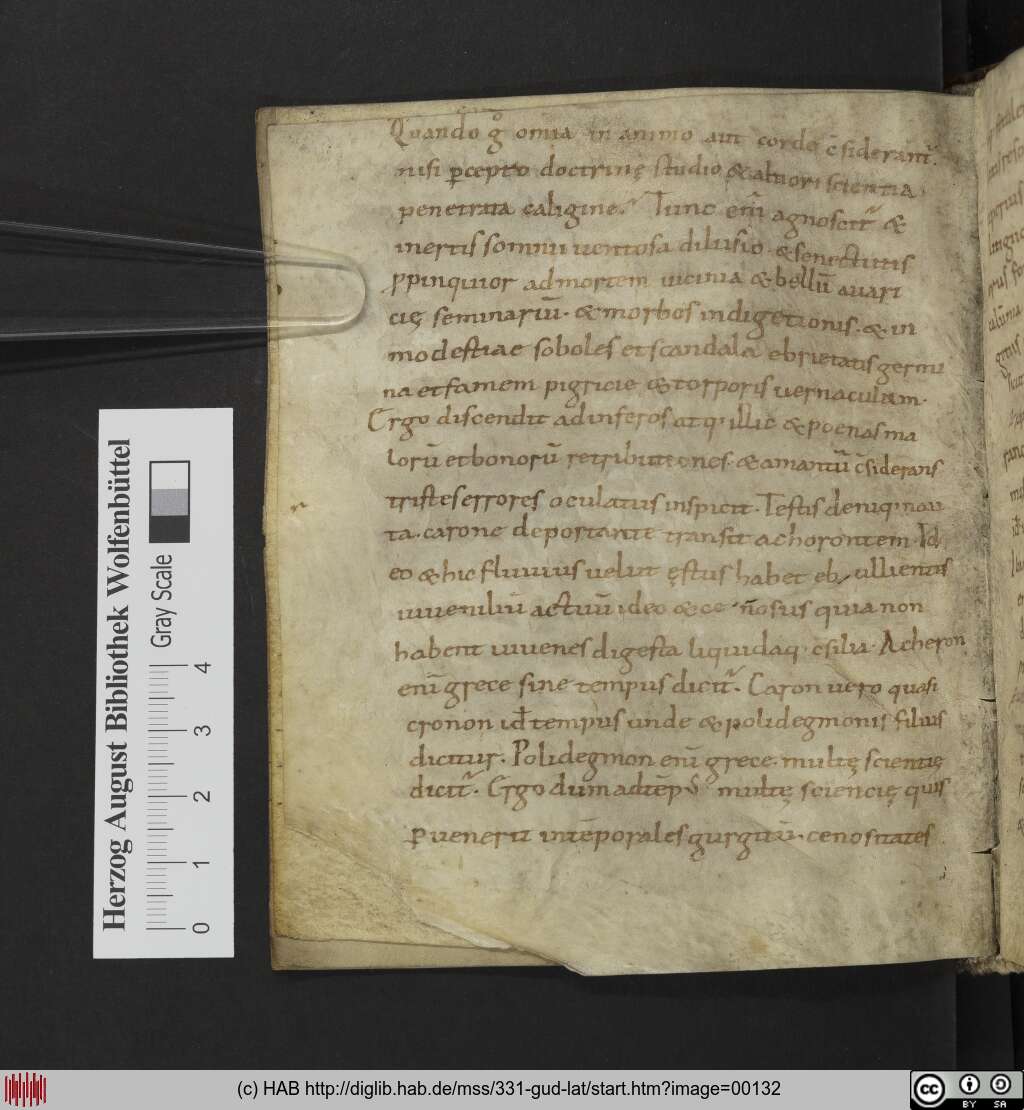 Quando g̊ omia in animo aut corde c̄siderant᷑.
nisi ꝑcepto doctrinę studio & altiori scientia
penetrata caligine. Tunc eni᷑ agnoscit᷑ &
inertis somnii uentosa dilusio. & senectutis
ꝓpinquior ad mortem uicinia & bellū auari
cię seminariū. & morbos indigetionis. & in
modestiae soboles et scandala ebrietatis germi
na et famem pigricie & torporis uernaculam.
Ergo discendit ad inferos atq; illic & poenas ma
lorū et bonorū retributiones. & amantū c̄siderans
tristes errores oculatus inspicit. Testis deniq; nau
ta. carone deportante transit achorontem. Id
eo & hic fluuius uelut ęstus habet eb ullientis
iuueniliū actuū ideo & ce nosus quia non
habent iuuenes digesta liquidaq; c̄silia. Acheron
eni᷑ grece sine tempus dicit᷑. Caron uero quasi
cronon id̄ tempus unde & polidegmonis filius
dicitur. Polidegmon eni᷑ grece. multę scientię
dicit᷑. Ergo dum ad tēp᷒ multę sciencię quis
ꝑuenerit intēporales gurgitū. cenositates
Herzog August Bibliothek Wolfenbüttel
Gray Scale
0 1 2 3 4
(c) HAB http://diglib.hab.de/mss/331-gud-lat/start.htm?image=00132
cc BY SA